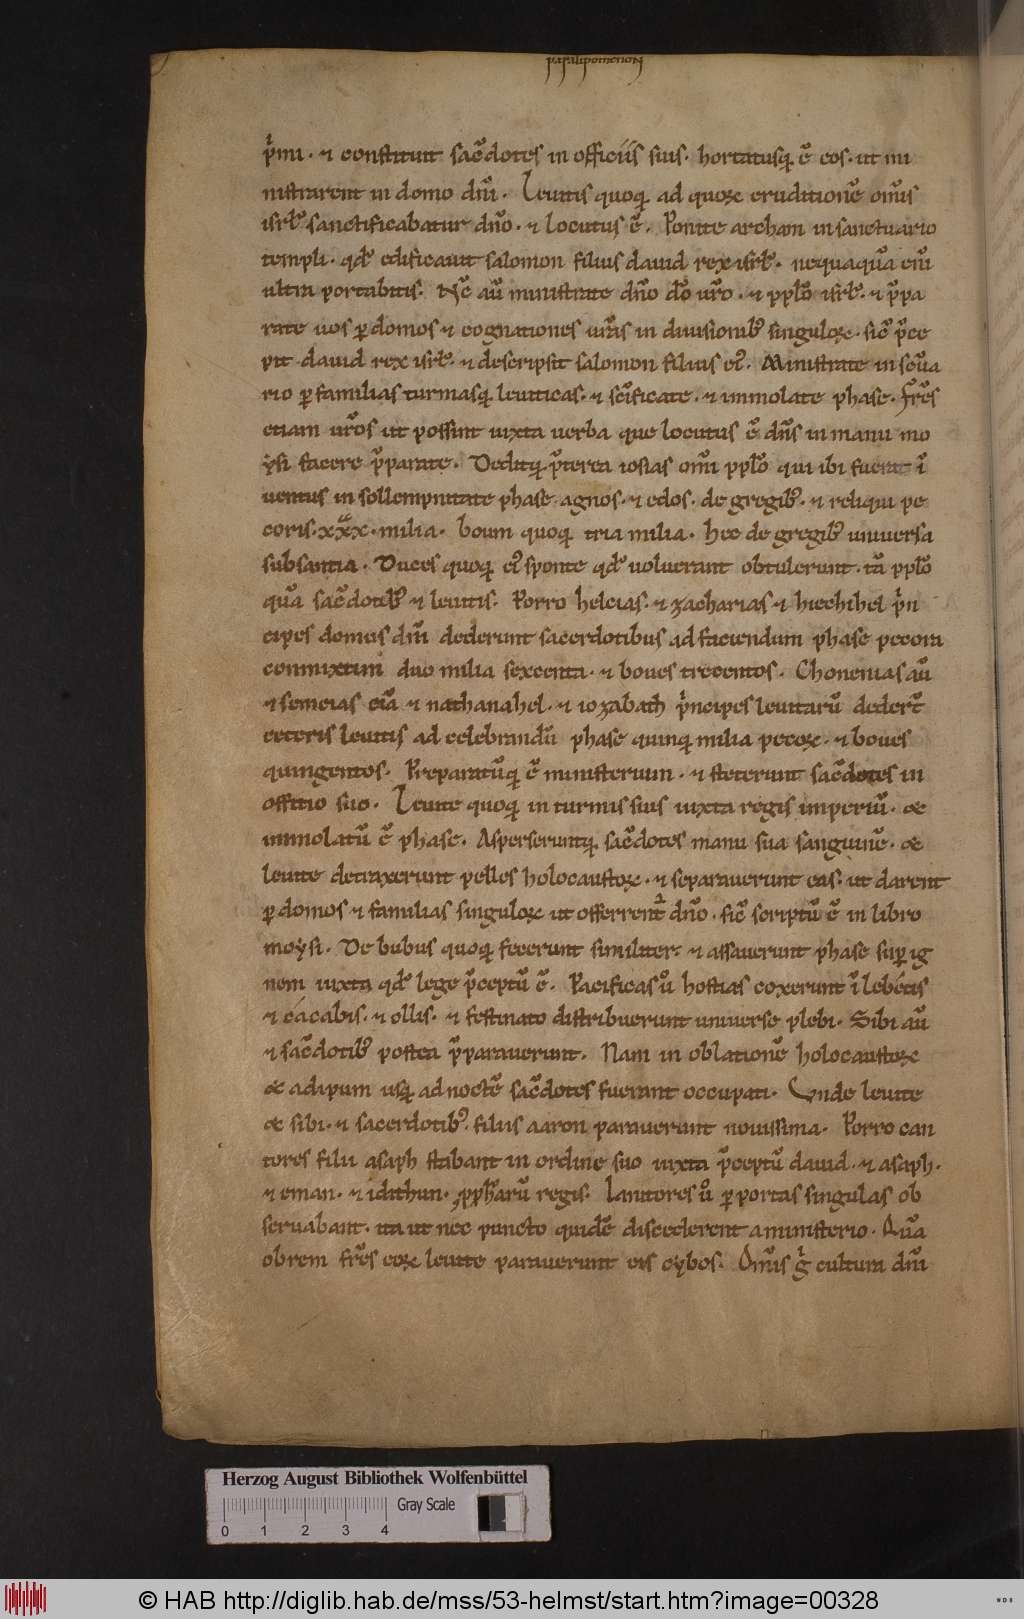 paralipomenon
p̾mi · ⁊ constituit sac̄dotes in officiis suis · hortatusq; ē eos · ut mi
nistrarent in domo dn̄i · Leuitis quoq; ad quoꝝ eruditionē om̄is
isrl̄ sanctificabatur dn̄o · ⁊ locutus ē · Ponite archam in sanctuario
templi · qd̄ edificauit salomon filius dauid rex isrl̄ · nequaquā eni̅
ultra portabitis · Nc̄ au̅ ministrate dn̄o dō ur̄o · ⁊ pplō isrl̄ · ⁊ p̄pa
rate uos ꝑ domos ⁊ cognationes ur̄as in diuisionibꝰ singuloꝝ · sic̄ p̄ce
pit dauid rex isrl̄ · ⁊ descripsit salomon filius eiꝰ · Ministrate in sc̄ua
rio ꝑ familias turmasq; leuiticas · ⁊ sc̄ificate · ⁊ immolate phase · Fr̄es
etiam ur̄os ut possint iuxta uerba que locutus ē dn̄s in manu mo
ẏsi facere p̄parate · Deditq; p̄terea iosias om̄i pplō qui ibi fuerat ī
uentus in sollempnitate phase agnos · ⁊ edos · de gregibꝰ · ⁊ reliqui pe
coris · xxx · milia · boum quoq; tria milia · hec de regibꝰ uniuersa
subsantia · Duces quoq; eiꝰ sponte qd̄ uoluerant obtulerunt · tā pplō
quā sac̄dotibꝰ ⁊ leuitis · Porro helcias · ⁊ zacharias ⁊ hiechihel p̾n
cipes domus dn̄i dederunt sacerdotibus ad faciendum phase pecora
conmixtim duo milia sexcenta · ⁊ boues trecentos · Chonenias au̅
⁊ semeias etiā ⁊ nathanahel · ⁊ iozabath p̾ncipes leuitarū dedert̄
ceteris leuitis ad celebrandū phase quinq; milia pecoꝝ · ⁊ boues
quingentos · Preparatūq; ē ministerium · ⁊ steterunt sac̄dotes in
offitio suo · Leuite quoq; in turmis suis iuxta regis imperiū · &
immolatū ē phase · Asperseruntq; sac̄dotes manu sua sanguinē · &
leuite detraxerunt pelles holocaustoꝝ · ⁊ separauerunt eas · ut darent
ꝑ domos ⁊ familias singuloꝝ ut offerrent̾ dn̄o · sic̄ scriptū ē in libro
moẏsi · De bubus quoq; fecerunt similiter · ⁊ assauerunt phase suꝑ ig
nem iuxta qd̄ lege p̄ceptū ē · Pacificas u̾ hostias coxerunt ī lebétis
⁊ cácabis · ⁊ ollis · ⁊ festinato distribuerunt uniuerse plebi · Sibi au̅
⁊ sac̄dotibꝰ postea p̄parauerunt · Nam in oblationē holocaustoꝝ
& adipum usq; ad noctē sac̄dotes fuerant occupati · Unde leuite
& sibi · ⁊ sacerdotibꝰ · filiis aaron parauerunt nouissima · Porro can
tores filii asaph stabant in ordine suo iuxta p̄ceptū dauid · ⁊ asaph ·
⁊ eman · ⁊ idithun · ꝓphetarū regis · Ianitores u̾ ꝑ portas singulas ob
seruabant · ita ut nec puncto quidē discederent a ministerio · Quā
obrem fr̄es eoꝝ leuite parauerunt eis cybos · Om̄is g̾ cultura dn̄i
Herzog August Bibliothek Wolfenbüttel
Gray Scale
0 1 2 3 4
© HAB http://diglib.hab.de/mss/53-helmst/start.htm?image=00328